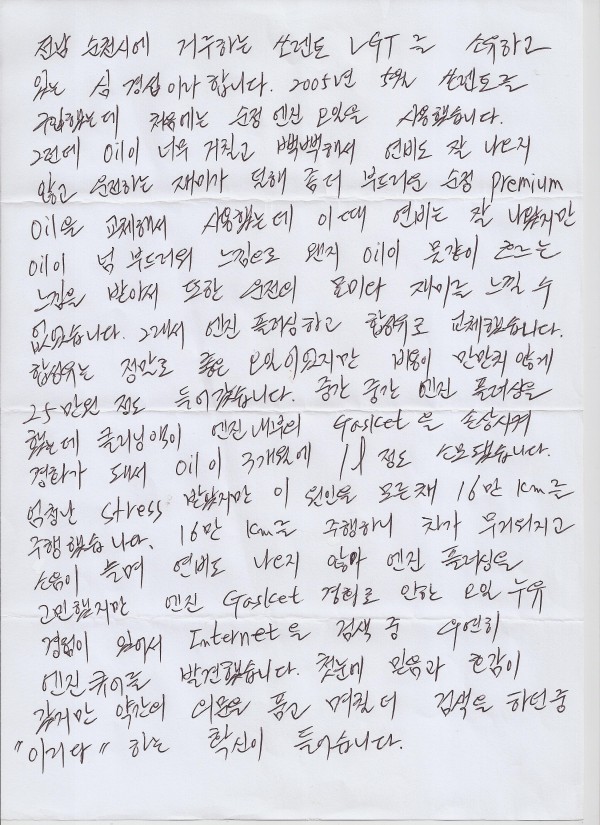 전남 순천시에 거주하는 쏘렌토 VGT를 소유하고
있는 심 경섭이라 합니다. 2005년 5월 쏘렌토를
구입했는데 처음에는 순정 엔진 오일을 사용했습니다.
그런데 Oil이 너무 거칠고 빡빡해서 연비도 잘 나오지
않고 운전하는 재미가 덜해 좀더 부드러운 순정 Premium
Oil을 교체해서 사용했는데 이때 연비는 잘 나왔지만
Oil이 넘 부드러워 느낌으로 왠지 Oil이 못같이 흐르는
느낌을 받아서 또한 운전의 묘미와 재미를 느낄 수
없었습니다. 그래서 엔진 플러싱하고 합성유로 교체했습니다.
합성유는 정말로 좋은 오일이었지만 비용이 만만치 않게
25만원 정도 들어갔습니다. 중간 중간 엔진 플러싱을
했는데 클리닝액이 엔진내부의 Gasket을 손상시켜
경화가 돼서 Oil이 3개월에 1l 정도 소모됐습니다.
엄청난 stress 받았지만 이 원인을 모른채 16만 km를
주행했습니다. 16만 km를 주행하니 차가 무거워지고
소음이 늘며 연비도 나오지 않아 엔진 플러싱을
고민했지만 엔진 Gasket 경화로 인한 오일 누유
경험이 있어서 Internet을 검색 중 우연히
엔진큐어를 발견했습니다. 첫눈에 믿음과 호감이
갔지만 약간의 의문을 품고 며칠 더 검색을 하던중
"이거다" 하는 확신이 들었습니다.